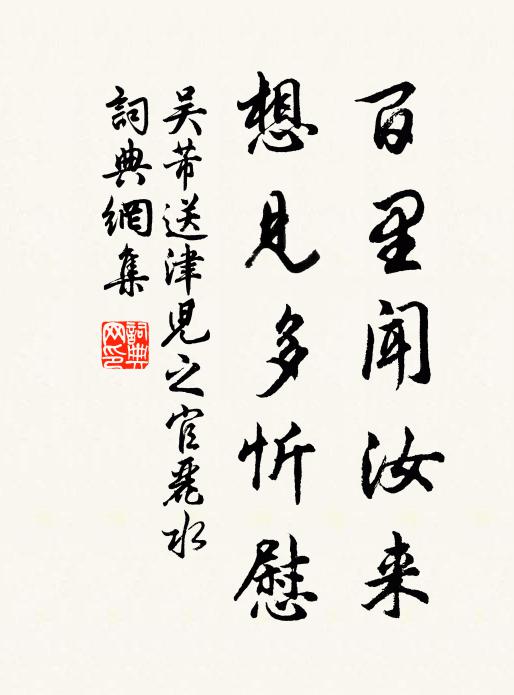 百里闻汝来
想见多忻慰
吴芾送津児之官麗水
詞典網集
詞典網印